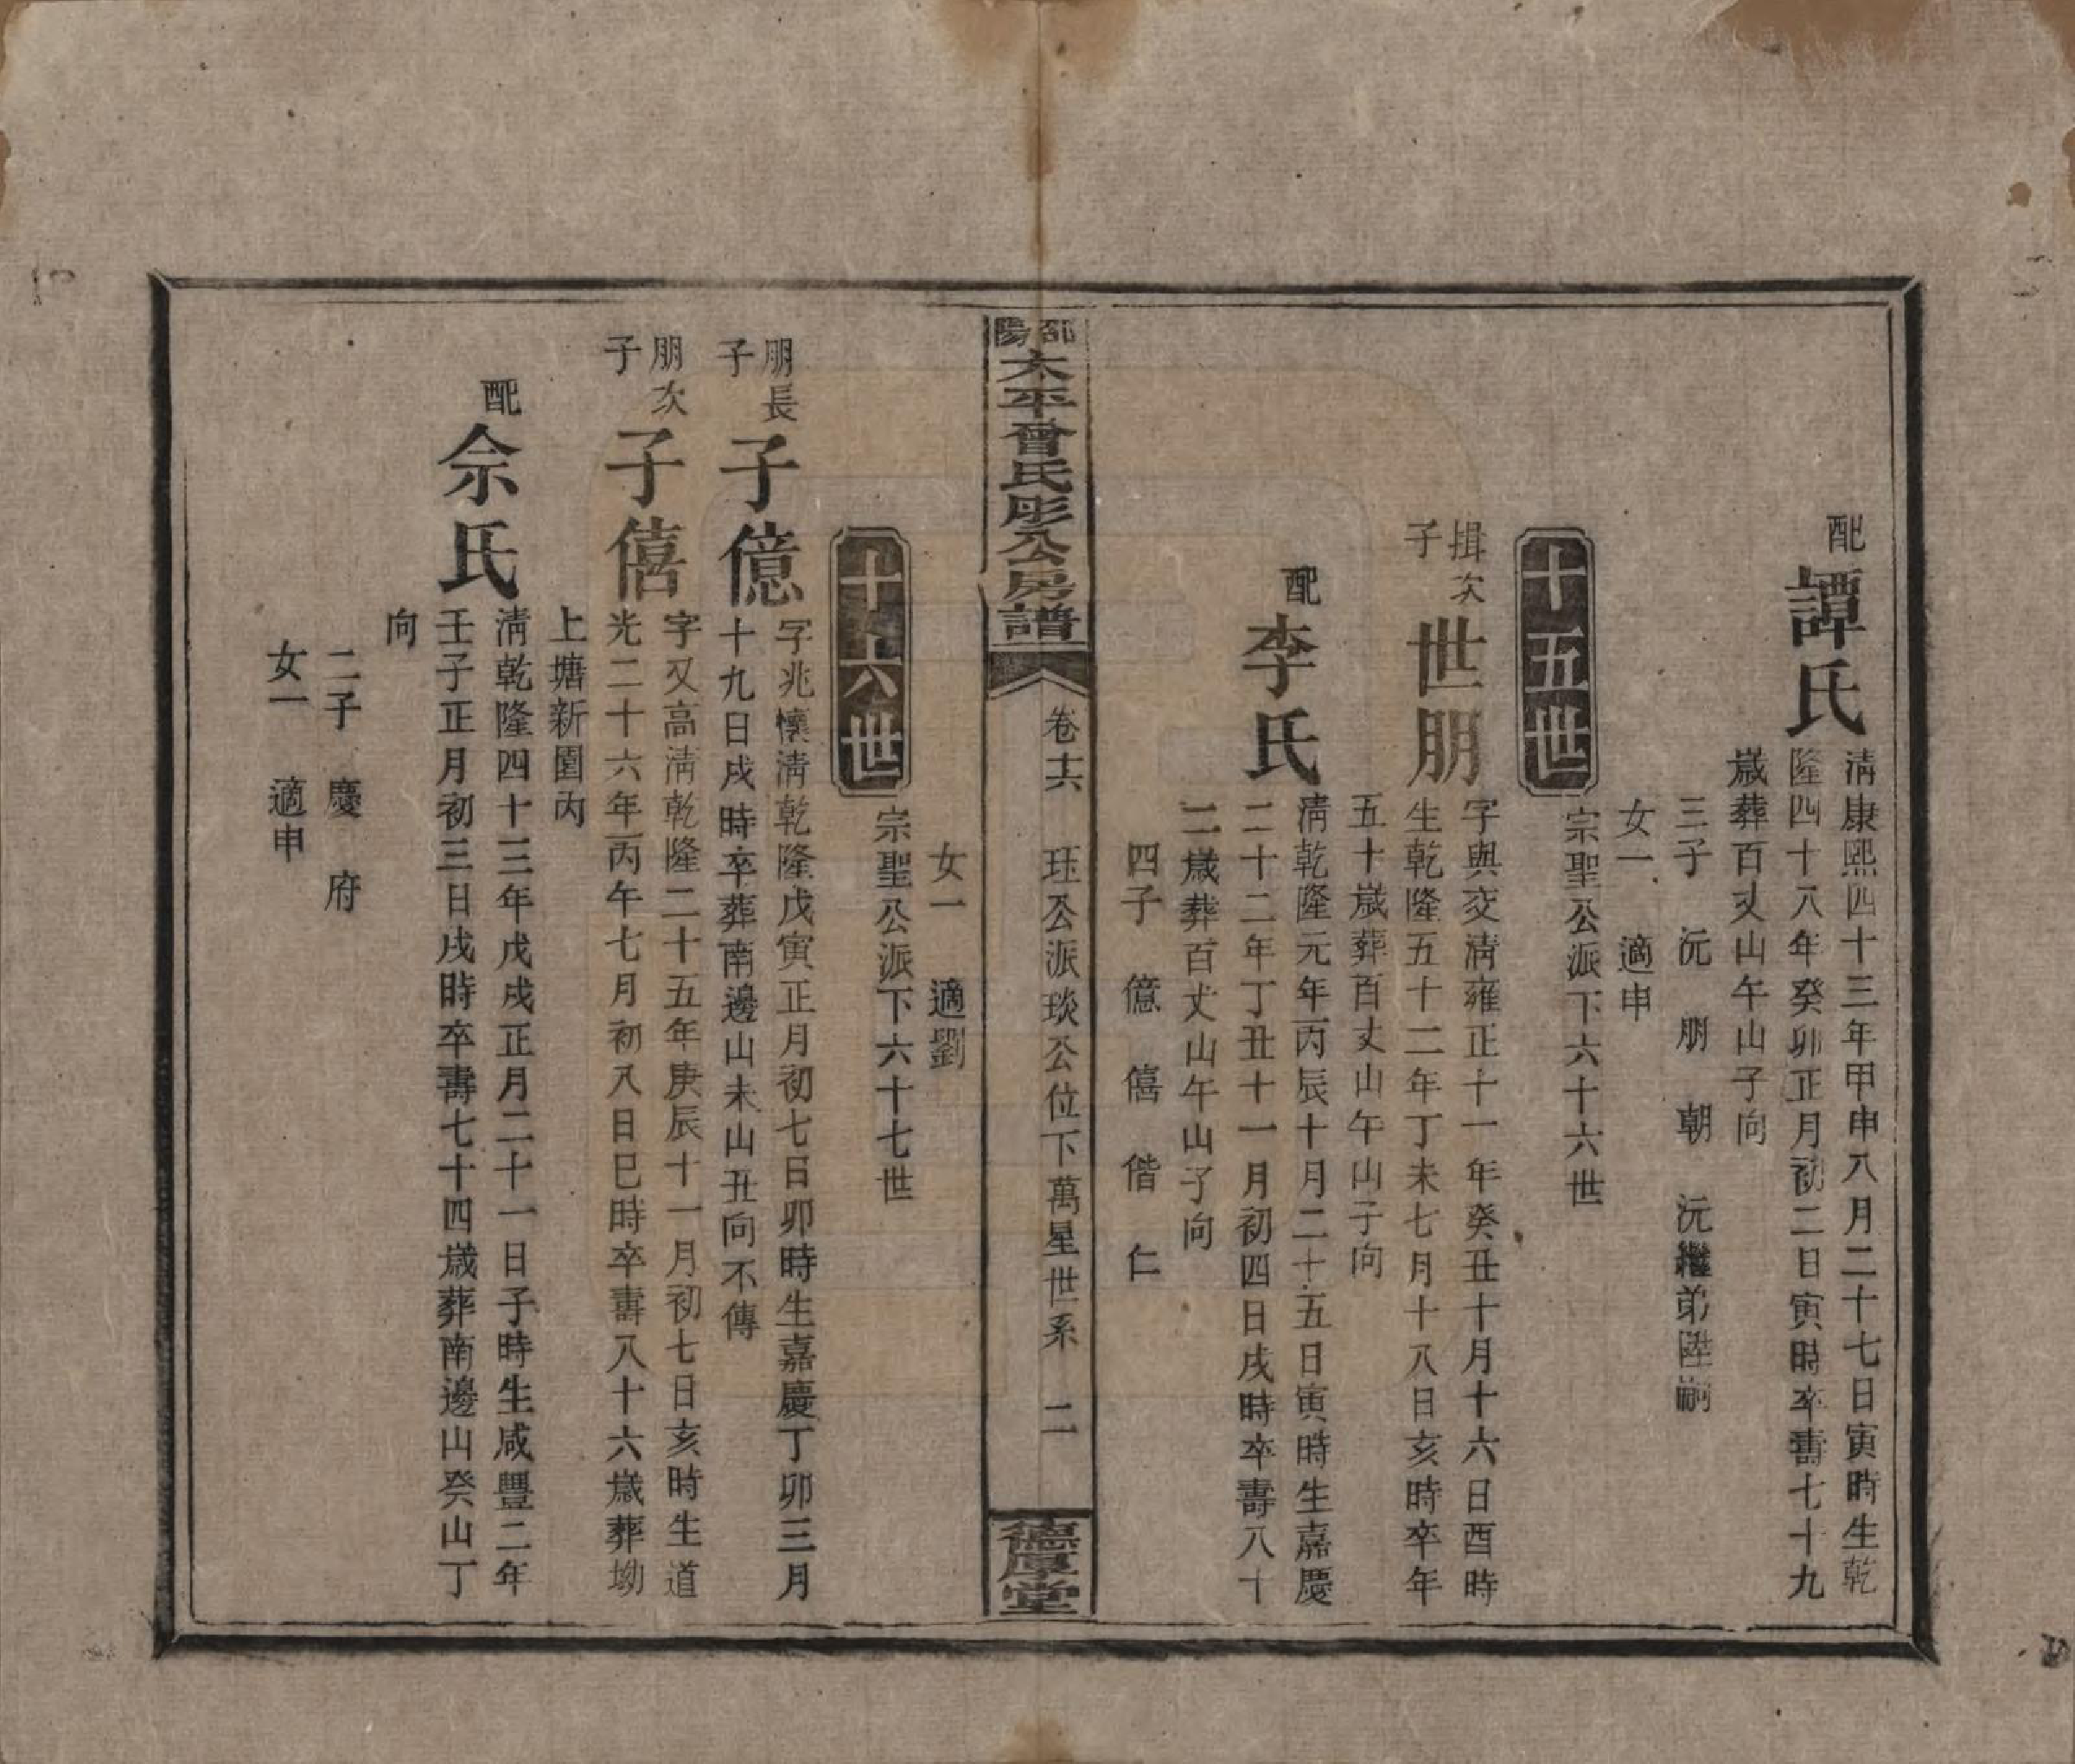 配譚氏
清康熙四十三年甲申八月二十七日寅時生乾
隆四十八年癸卯正月初二日寅時卒壽七十九
歲葬百丈山午山子向
三子 沅 朋 朝 沅繼弟陞嗣
女一 適申
十五世
宗聖公派下六十六世
揖次子世朋
字與交清雍正十一年癸丑十月十六日酉時
生乾隆五十二年丁未七月十八日亥時卒年
五十歲葬百丈山午山子向
配李氏
清乾隆元年丙辰十月二十五日寅時生嘉慶
二十二年丁丑十一月初四日戌時卒壽八十
二歲葬百丈山午山子向
四子 億 僖 偕 仁
邵陽太平曾氏彫公房譜
卷十六 珏公派琰公位下萬星世系 二
德厚堂
女一 適劉
十六世
宗聖公派下六十七世
朋長子子億
字兆懷清乾隆戊寅正月初七日卯時生嘉慶丁卯三月
十九日戌時卒葬南邊山未山丑向不傳
朋次子子僖
字又高清乾隆二十五年庚辰十一月初七日亥時生道
光二十六年丙午七月初八日巳時卒壽八十六歲葬坳
上塘新園丙
配佘氏
清乾隆四十三年戊戌正月二十一日子時生咸豐二年
壬子正月初三日戌時卒壽七十四歲葬南邊山癸山丁
向
二子 慶 府
女一 適申